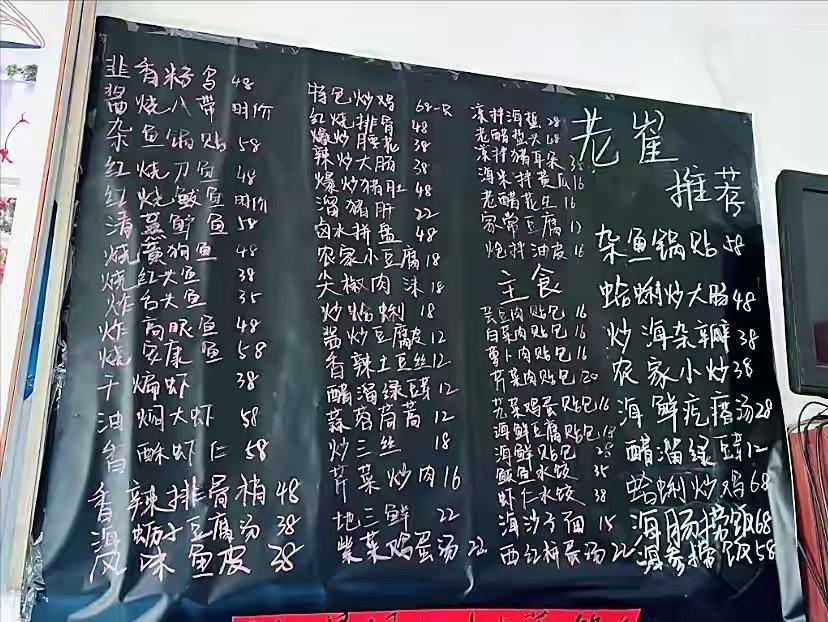 韭香粉鸟 48
酱烧八带 时价
杂鱼锅贴 58
红烧刀鱼 48
红烧鲅鱼 时价
清蒸鲈鱼 58
烧黄狗鱼 48
烧红头鱼 38
炸舌头鱼 35
炸高眼鱼 48
烧安康鱼 58
干煸虾 38
油焖大虾 58
香酥虾仁 58
香辣排骨梢 48
海蛎子豆腐汤 38
风味鱼皮 38
特色炒鸡 68-只
红烧排骨 48
爆炒腰花 38
辣炒大肠 38
爆炒猪肚 48
溜猪肝 22
卤水拼盘 48
农家小豆腐 18
尖椒肉沫 18
炒蛤蜊 18
酱炒豆腐皮 12
香辣土豆丝 12
醋溜绿豆芽 12
蒜蓉茼蒿 12
炒三丝 18
芹菜炒肉 16
地三鲜 22
紫菜鸡蛋汤 22
凉拌海蜇 28
老醋蜇头 68
凉拌猪耳朵
海米拌黄瓜 16
老醋花生 16
家常豆腐 12
炝拌油皮 16
主食
芸豆肉贴包 16
白菜肉贴包 16
萝卜肉贴包 16
芹菜肉贴包 20
韭菜鸡蛋贴包 16
海鲜豆腐贴包 18
海鲜贴包 28
鲅鱼水饺 35
虾仁水饺 38
海沙子面 15
西红柿蛋汤 22
老崔
推荐
杂鱼锅贴 58
蛤蜊炒大肠 48
炒海杂瓣 38
农家小炒 38
海鲜疙瘩汤 28
醋溜绿豆芽 12
蛤蜊炒鸡 68
海肠捞饭 68
海参捞饭 58